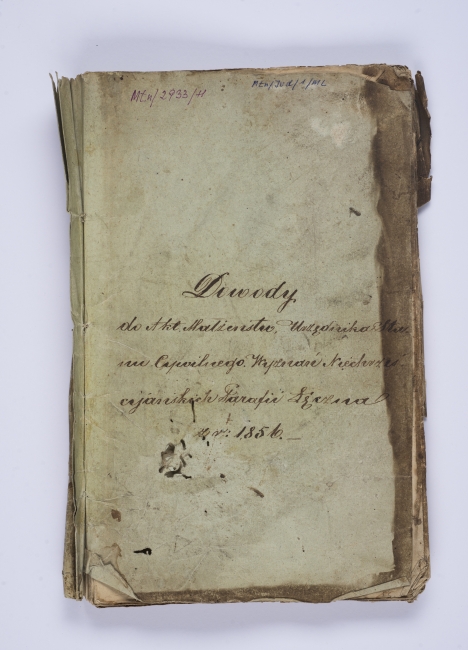 MŁn/2933/H
MŁn/Jud/1/ML
Dowody
do Akt Małżeństw, Urzędnika Sta,
nu Cywilnego Wyznań Niechrze
cijańskich Parafii Łęczna
z r: 1856. —